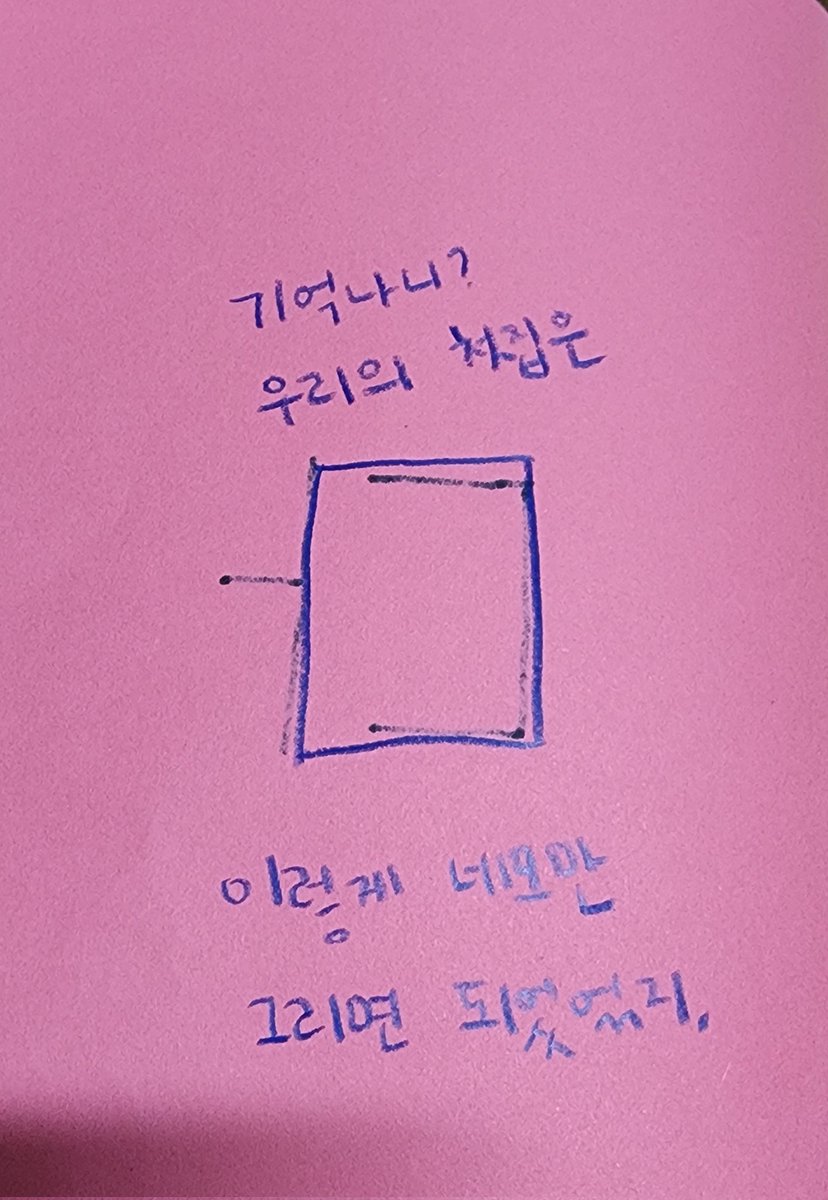 기억나니?
우리의 첫집은
이렇게 네모만
그리면 되었었지.